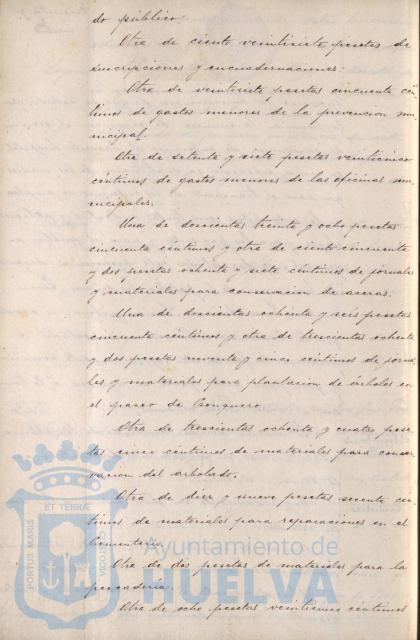 do público.
Otra de ciento veintisiete pesetas de
suscripciones y encuadernaciones.
Otra de veintisiete pesetas cincuenta cén
timos de gastos menores de la prevencion mu
nicipal.
Otra de setenta y siete pesetas veinticinco
céntimos de gastos menores de las oficinas mu
nicipales.
Una de doscientas treinta y ocho pesetas
cincuenta céntimos y otra de ciento cincuenta
y dos pesetas ochenta y siete céntimos de jornales
y materiales para conservacion de aceras.
Una de doscientas ochenta y seis pesetas
cincuenta céntimos y otra de trescientas ochenta
y dos pesetas noventa y cinco céntimos de jorna
les y materiales para plantacion de árboles en
el paseo de Conquero.
Otra de trescientas ochenta y cuatro pese
tas cinco céntimos de materiales para conser
vacion del arbolado.
Otra de diez y nueve pesetas sesenta cén
timos de materiales para reparaciones en el
Cementerio.
Otra de dos pesetas de materiales para la
pescadería.
Otra de ocho pesetas veinticinco céntimos
PORTUS MARIS
ET TERRAE
CUSTODIA
Ayuntamiento de
HUELVA